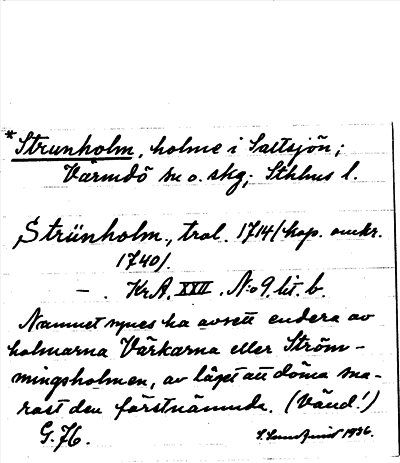 *Strunholm, holme i Saltsjön;
Värmdö sn o. skg; Sthlms l.
Strünholm, trol. 1714/kop. omkr.
1740/.
— . Kr.A. XXII. N:o 9. lit. b.
Namnet synes ha avsett endera av
holmarna Värkarna eller Ström-
mingsholmen, av läget att döma sna-
rast den förstnämnda. (Vänd!)
G.76. 1936.